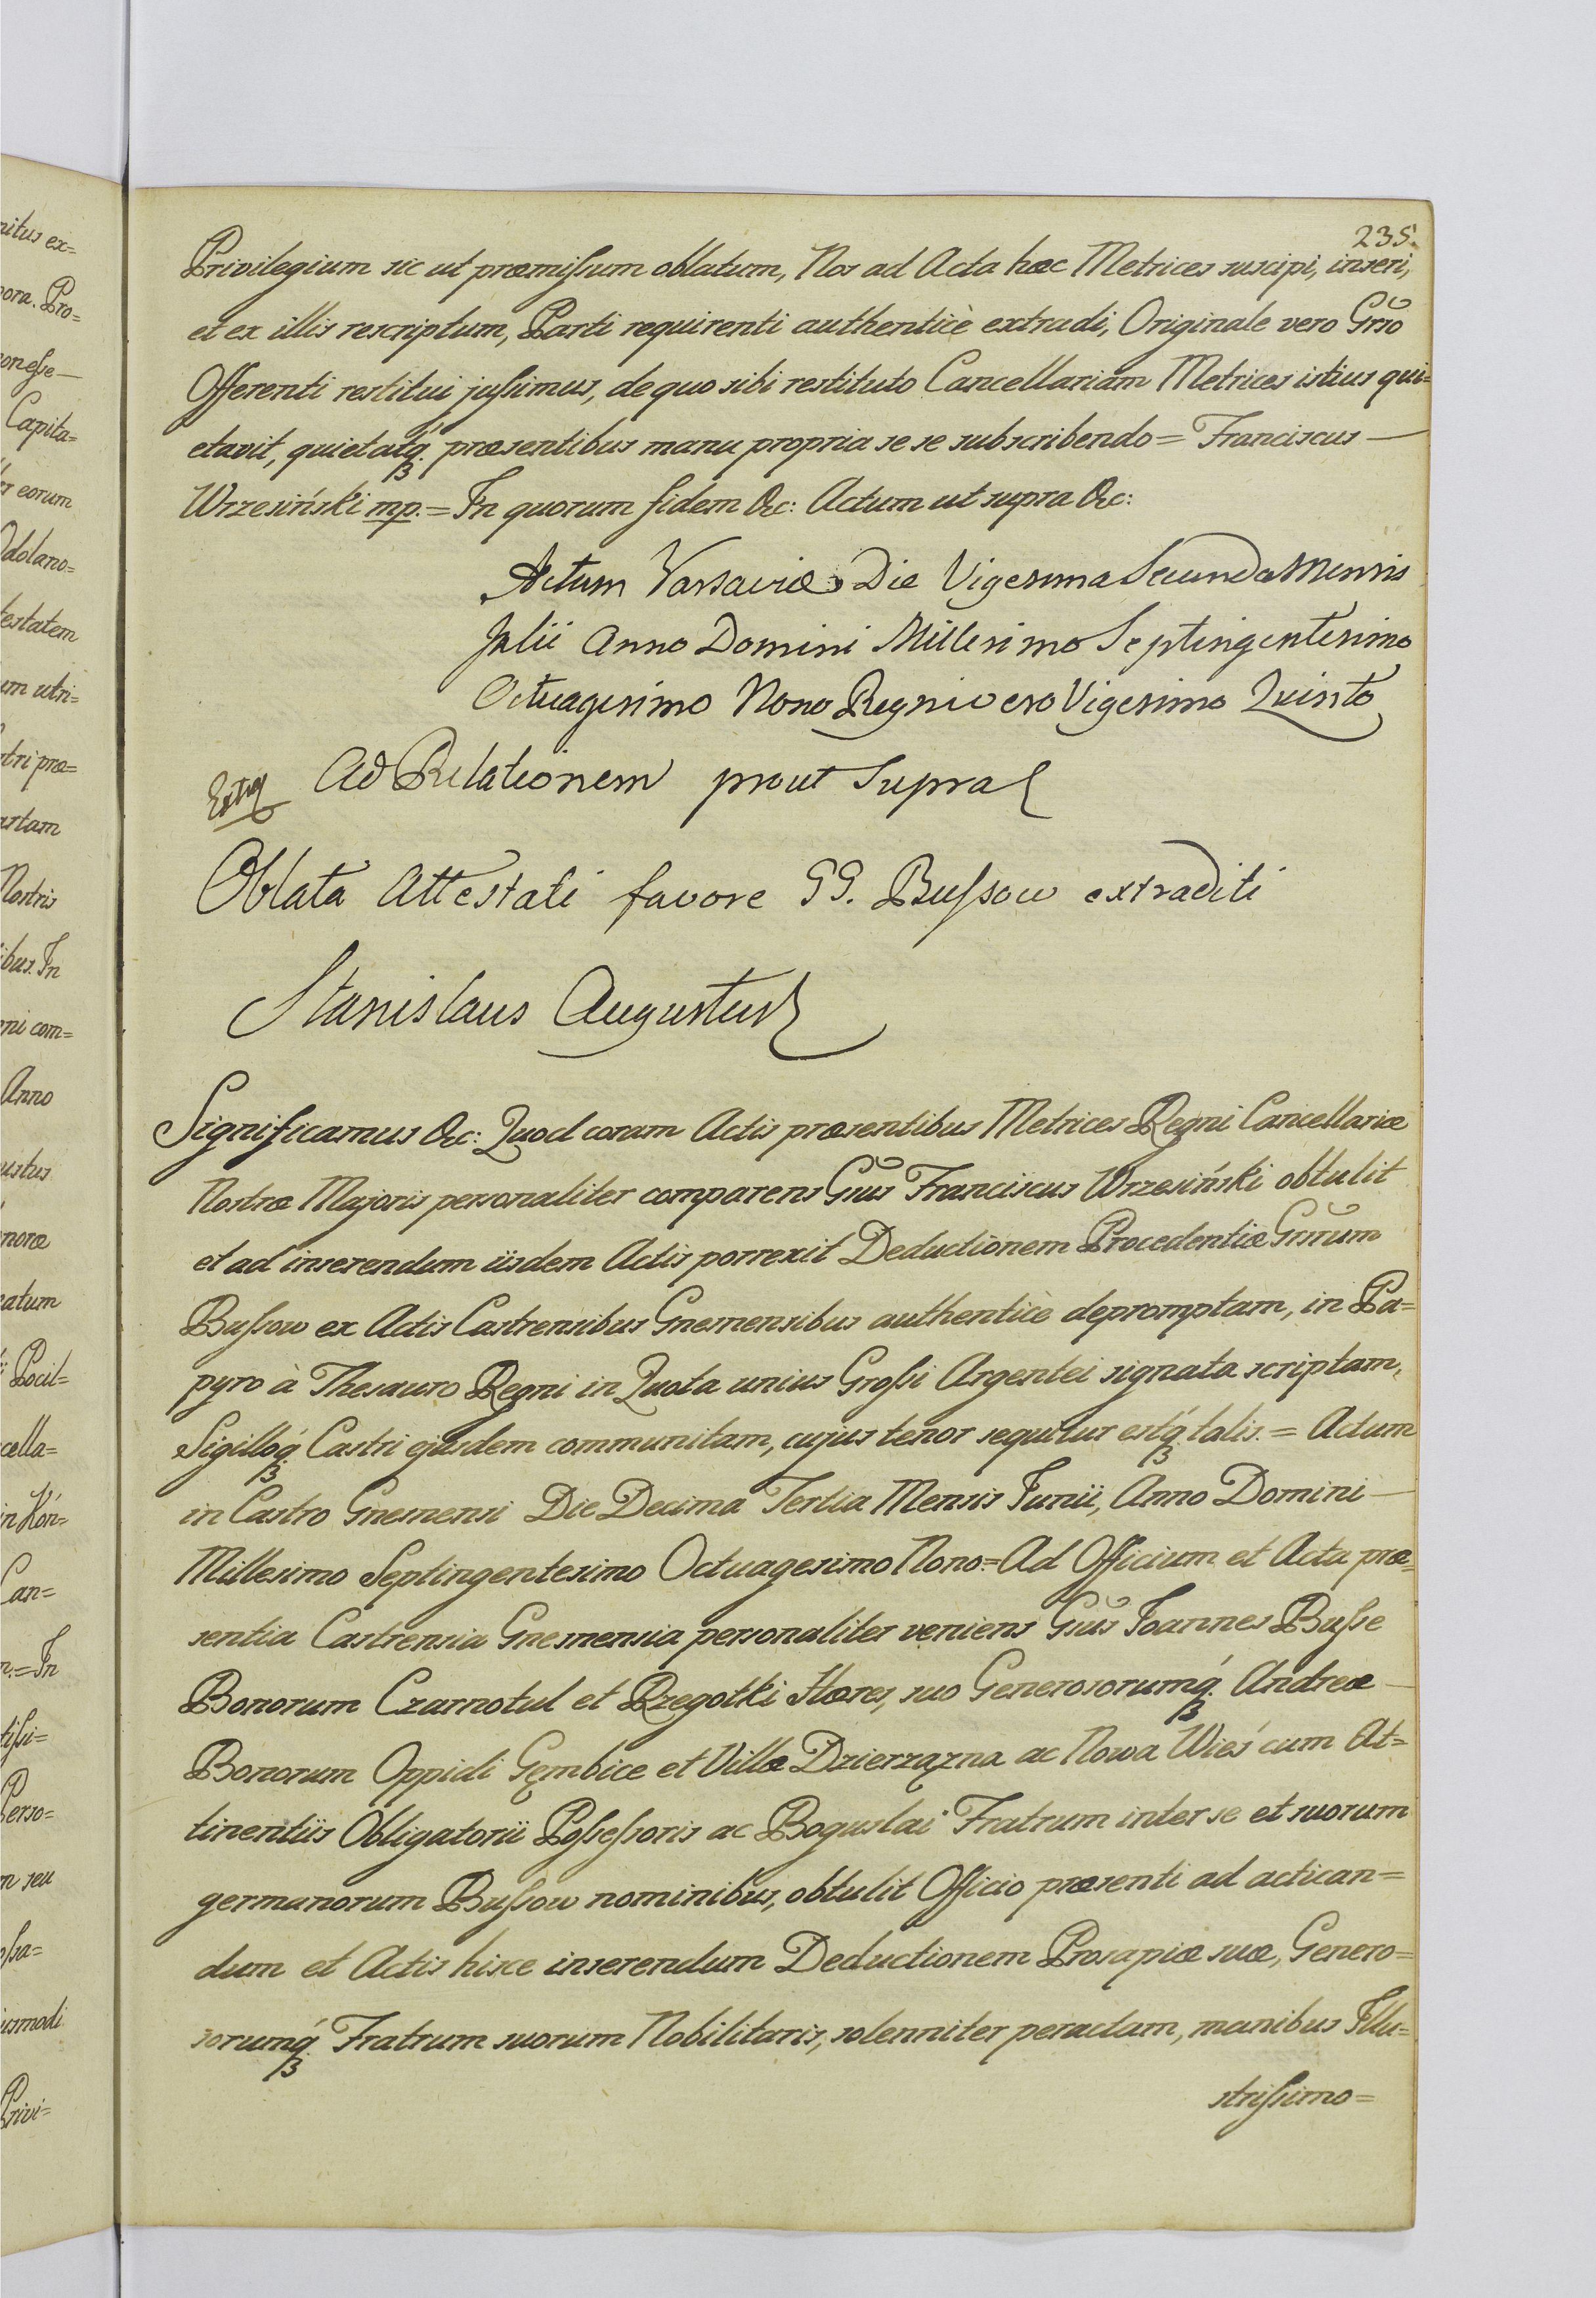 235.
Privilegium sic ut præmissum oblatum, Nos ad Acta hæc Metrices suscipi, inseri,
et ex illis rescriptum, Parti requirenti authenticè extradi, Originale vero Gnso
Offerenti restitui jussimus, de quo sibi restituto Cancellariam Metrices istius qui=
etavit, quietatq́ꝫ præsentibus manu propria se se subscribendo = Franciscus —
Wrzesiński mp. = In quorum fidem &c: Actum ut supra &c:
Actum Varsaviæ Die Vigesima Secunda Mensis
Julii Anno Domini Millesimo Septingentesimo
Octuagesimo Nono Regni vero Vigesimo Quinto
Ad Relationem prout Supra
Oblata Attestati favore GG. Bussow extraditi
Stanislaus Augustus
Significamus &c: Quod coram Actis præsentibus Metrices Regni Cancellariæ
Nostræ Majoris personaliter comparens Gnsus Franciscus Wrzesiński obtulit
et ad inserendum iisdem Actis porrexit Deductionem Procedentiæ Gnsrum
Bussow ex Actis Castrensibus Gnesnensibus authenticè depromptam, in Pa=
pyro à Thesauro Regni in Quota unius Grossi Argentei signata scriptam,
Sigilloq́ꝫ Castri ejusdem communitam, cujus tenor sequitur estq́ꝫ talis. = Actum
in Castro Gnesnensi Die Decima Tertia Mensis Junii, Anno Domini —
Millesimo Septingentesimo Octuagesimo Nono = Ad Officium et Acta præ=
sentia Castrensia Gnesnensia personaliter veniens Gnsus Joannes Busse
Bonorum Czarnotul et Rzegotki Hæres, suo Generosorumq́ꝫ Andreæ —
Bonorum Oppidi Gęmbice et Villæ Dzierzązna ac Nowa Wieś cum At=
tinentiis Obligatorii Possessoris ac Boguslai Fratrum inter se et suorum
germanorum Bussow nominibus, obtulit Officio præsenti ad actican=
dum et Actis hisce inserendum Deductionem Prosapiæ suæ, Genero=
sorumq́ꝫ Fratrum suorum Nobilitaris, solenniter peractam, manibus Illu=
strissimo=